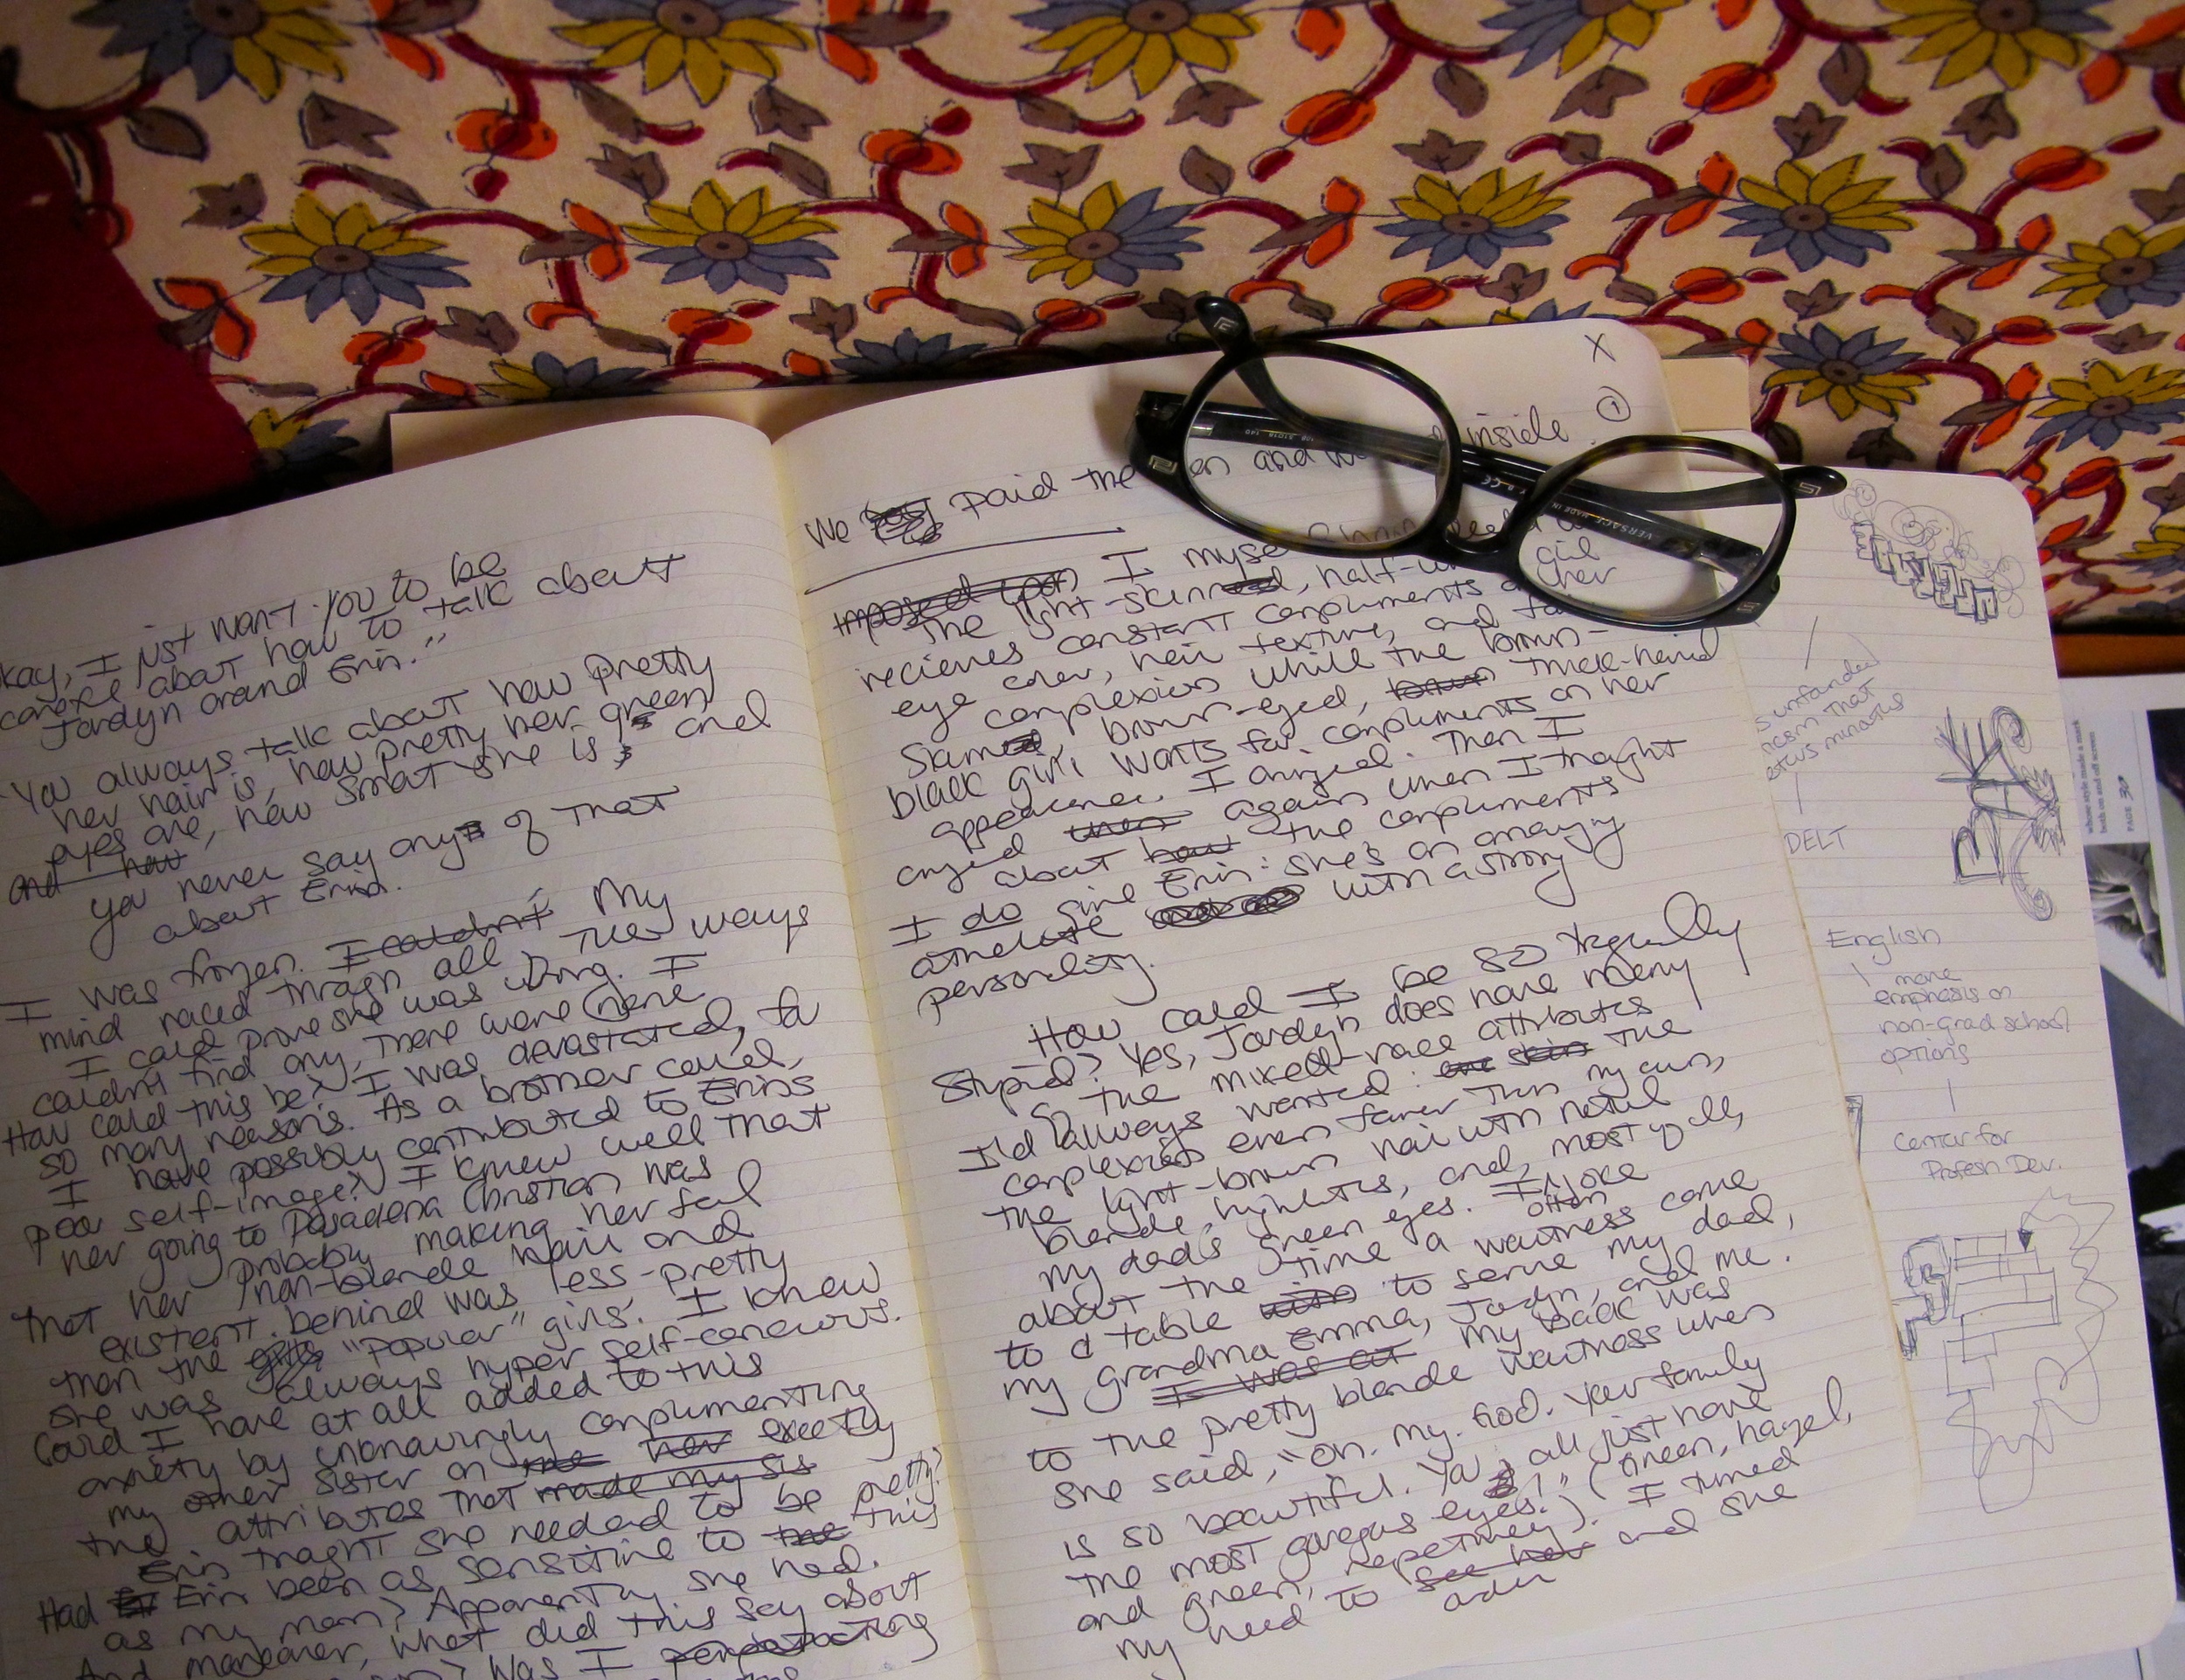 kay, I just want you to be
careful about how to talk about
Jordyn around Erin."
"You always talk about how pretty
her hair is, how pretty her green
eyes are, how smart she is, and
and how
you never say any of that
about Erin.
I was frozen. I couldn't My
mind raced through all the ways
I could prove she was wrong. I
couldn't find any, there were none
How could this be? I was devastated, for
so many reasons. As a brother could,
I have possibly contributed to Erin's
poor self-image? I knew well that
her going to Pasadena Christian was
probably making her feel
that her non-blonde hair and
existent behind was less-pretty
than the "popular" girls. I knew
she was always hyper self-concious.
Could I have at all added to this
anxiety by unknowingly complimenting
my other sister on the her exactly
the attributes that made my sis
Erin thought she needed to be pretty?
Had Erin been as sensitive to the this
as my mom? Apparently, she had.
And moreover, what did this say about
? Was I perpetuating
X
①
We paid the and inside.
imposed upon I
The light-skinned,
girl
recieves constant compliments her
eye color, hair texture, and
complexion while the brown-
skinned, brown-eyed, brown thick-haired
black girl waits for compliments on her
appearance. I cringed. Then I
cringed then again when I thought
about how the compliments
I do give Erin: she's an amazing
athelete with a strong
personality.
How could I be so tragically
stupid? Yes, Jordyn does have many
of the mixed-race attributes
I'd always wanted: skin the
complexion even fairer than my own,
the light-brown hair with natural
blonde highlights, and, most of all,
my dad's green eyes. I often joke
about the time a waitress came
to a table with to serve my dad,
my grandma Emma, Jordyn, and me.
I was at My back was
to the pretty blonde waitress when
she said, "oh. my. God. Your family
is so beautiful. You all just have
the most gorgeous eyes!" (Green, hazel,
and green, repetively). I turned
my head to see her and she
order
DELT
English
more
emphasis on
non-grad school
options
Center for
Profesh Dev.
VERSACE MADE IN
CE
whose style made a mark
both on and off screen
PAGE 30